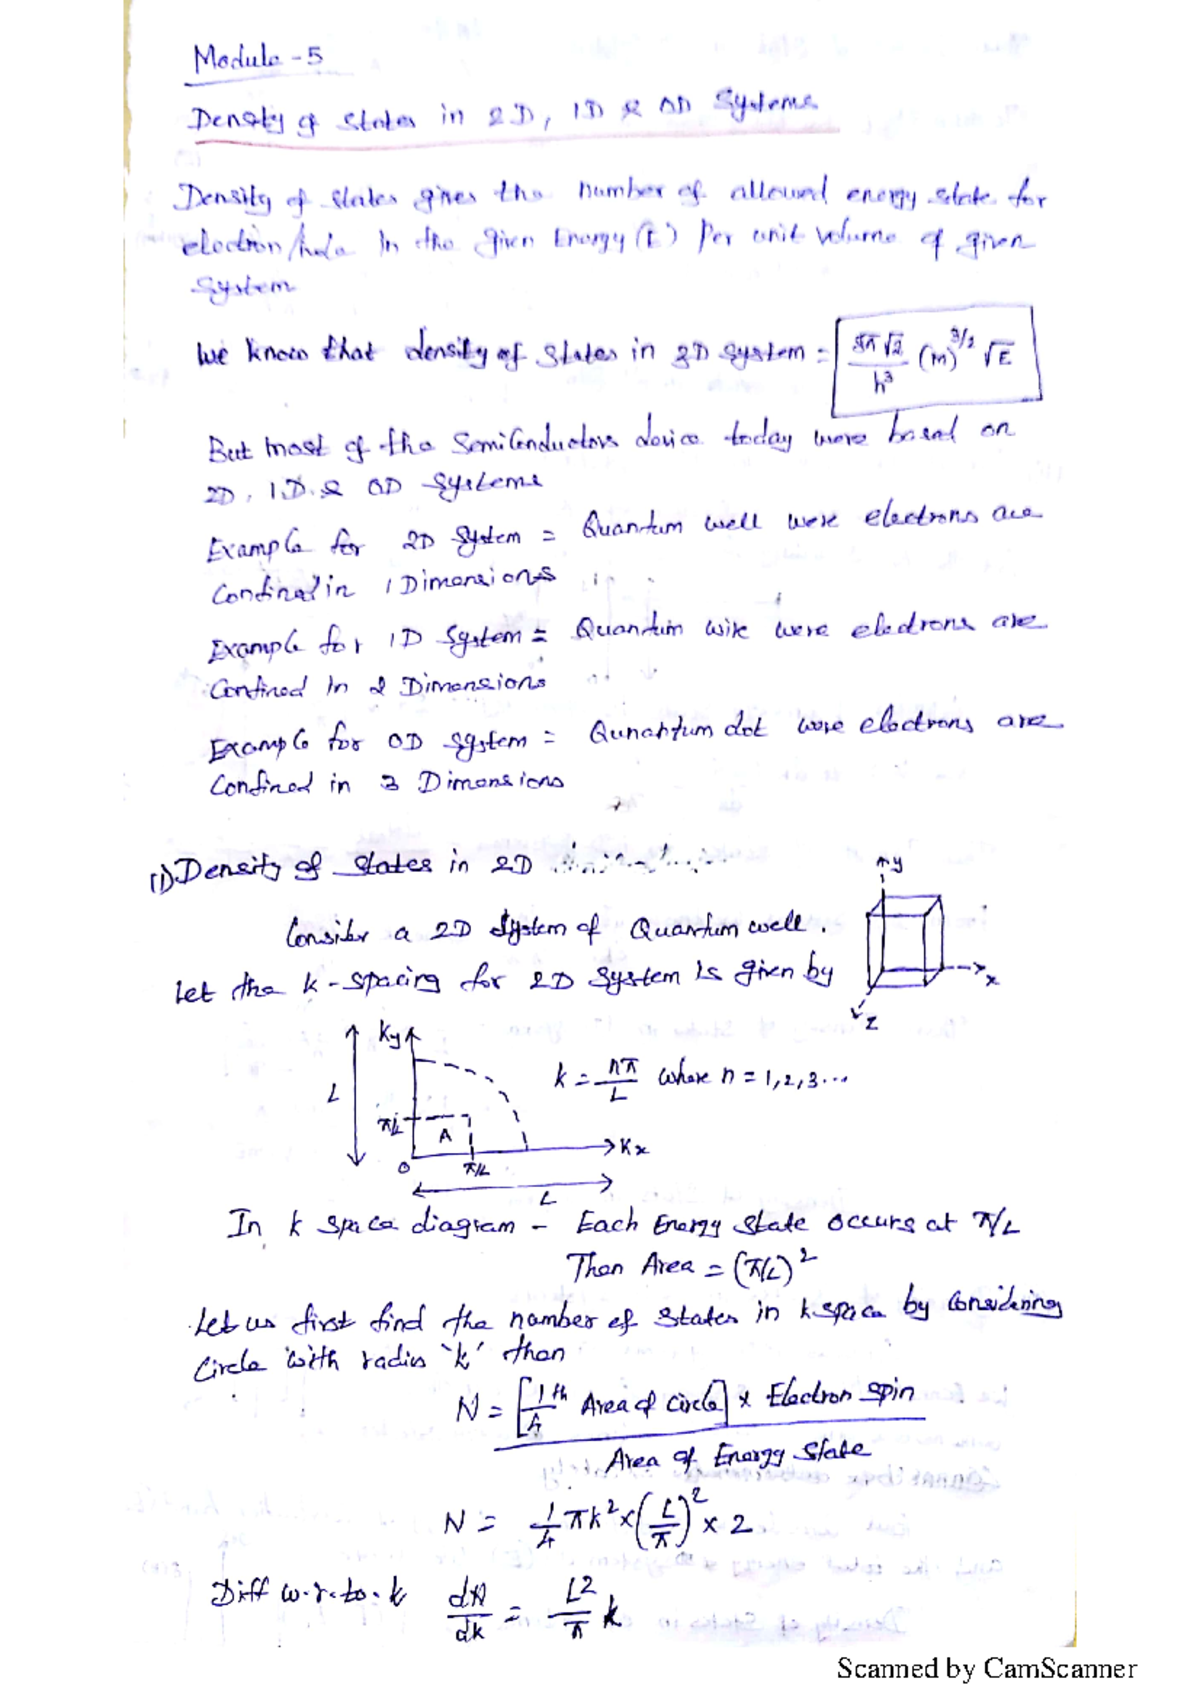 Module - 5
Density of States in 2D, 1D & 0D Systems
Density of states gives the number of allowed energy state for
electron/hole in the given Energy (E) Per unit volume of given
system
We know that density of States in 3D system = 8π√2/h³ (m)^3/2 √E
But most of the SemiConductors device today were based on
2D, 1D & 0D Systems
Example for 2D System = Quantum well were electrons are
Confined in 1 Dimensions
Example for 1D System = Quantum wire were electrons are
Confined in 2 Dimensions
Example for 0D system = Qunantum dot were electrons are
Confined in 3 Dimensions
(1) Density of States in 2D
y
x
z
Consider a 2D System of Quantum well.
Let the k-spacing for 2D System is given by
Ky
L
π/L
A
0
π/L
Kx
L
k = nπ/L where n = 1,2,3...
In k space diagram - Each Energy State occurs at π/L
Then Area = (π/L)²
Let us first find the number of States in k space by Considering
Circle with radius 'k' then
N = [1/4 th Area of Circle] x Electron spin
Area of Energy State
N = 1/4 πk² x (L/π)² x 2
Diff w.r.to.k dN/dk = L²/π k
Scanned by CamScanner